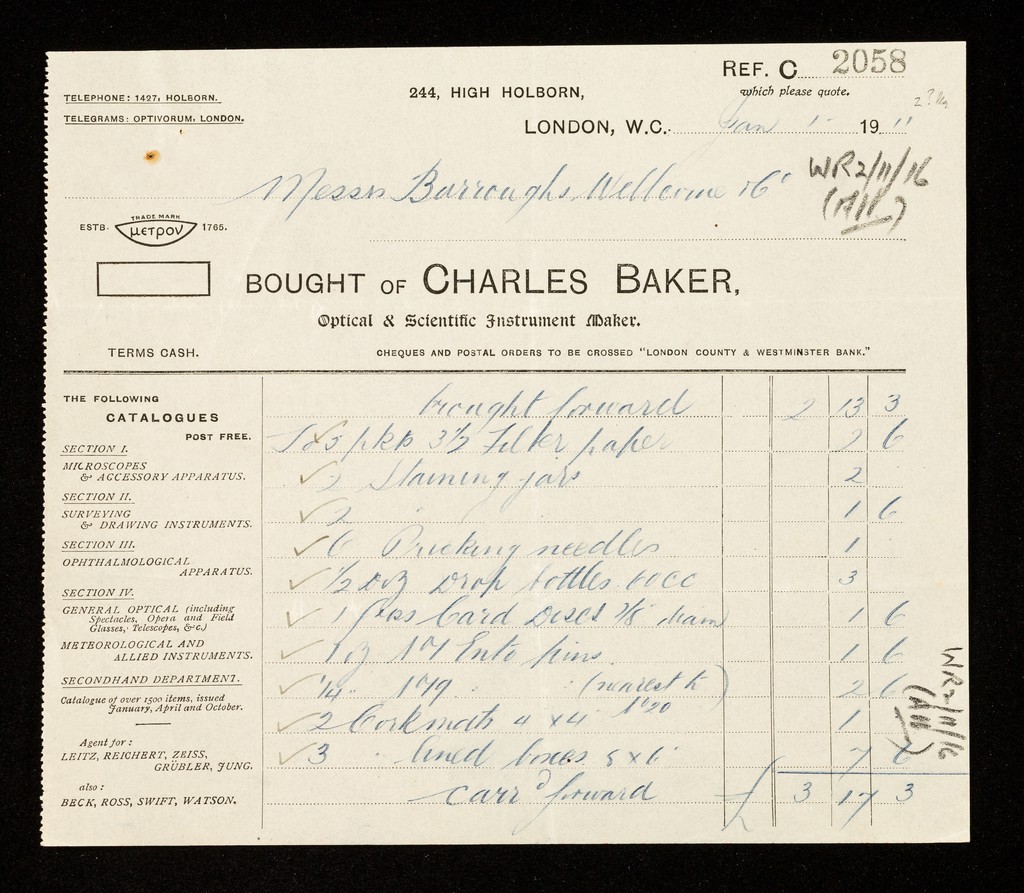 REF. C 2058
which please quote.
TELEPHONE: 1427, HOLBORN.
TELEGRAMS: OPTIVORUM, LONDON.
244, HIGH HOLBORN,
LONDON, W.C. Jan 1911
WR2/11/16
Messrs Burroughs, Wellcome & Co
ESTB. TRADE MARK μετρον 1765.
BOUGHT OF CHARLES BAKER,
Optical & Scientific Instrument Maker.
TERMS CASH.
CHEQUES AND POSTAL ORDERS TO BE CROSSED "LONDON COUNTY & WESTMINSTER BANK."
THE FOLLOWING
CATALOGUES
POST FREE.
SECTION I.
MICROSCOPES
& ACCESSORY APPARATUS.
SECTION II.
SURVEYING
& DRAWING INSTRUMENTS.
SECTION III.
OPHTHALMOLOGICAL
APPARATUS.
SECTION IV.
GENERAL OPTICAL (including
Spectacles, Opera and Field
Glasses, Telescopes, &c.)
METEOROLOGICAL AND
ALLIED INSTRUMENTS.
SECONDHAND DEPARTMENT.
Catalogue of over 1500 items, issued
January, April and October.
Agent for:
LEITZ, REICHERT, ZEISS,
GRÜBLER, JUNG.
also:
BECK, ROSS, SWIFT, WATSON.
brought forward 2 13 3
5 pkts 3½ Filter paper 2 6
2 Staining jars 2
2 " " 1 6
6 Pricking needles 1
½ doz Drop bottles 60cc 3
1 Gross Card Discs 7/8 diam 1 6
1 oz No 17 Ento pins 1 6
¼ " No 19 " (nearest to No 20) 2 6
2 Cork mats 4 x 4 1
3 " lined boxes 8 x 6 7 6
carrd forward £ 3 17 3
WR2/11/16